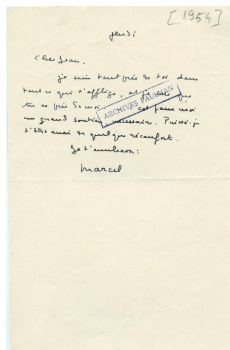 [1954]
jeudi
Cher Jean,
je suis tout près de toi dans
tout ce qui t'afflige, et je sais que
tu es près de moi. est pour moi
un grand soutien nécessaire. Puissé-je
t'être aussi de quelque réconfort.
Je t'embrasse:
Marcel
ARCHIVES PAULHAN